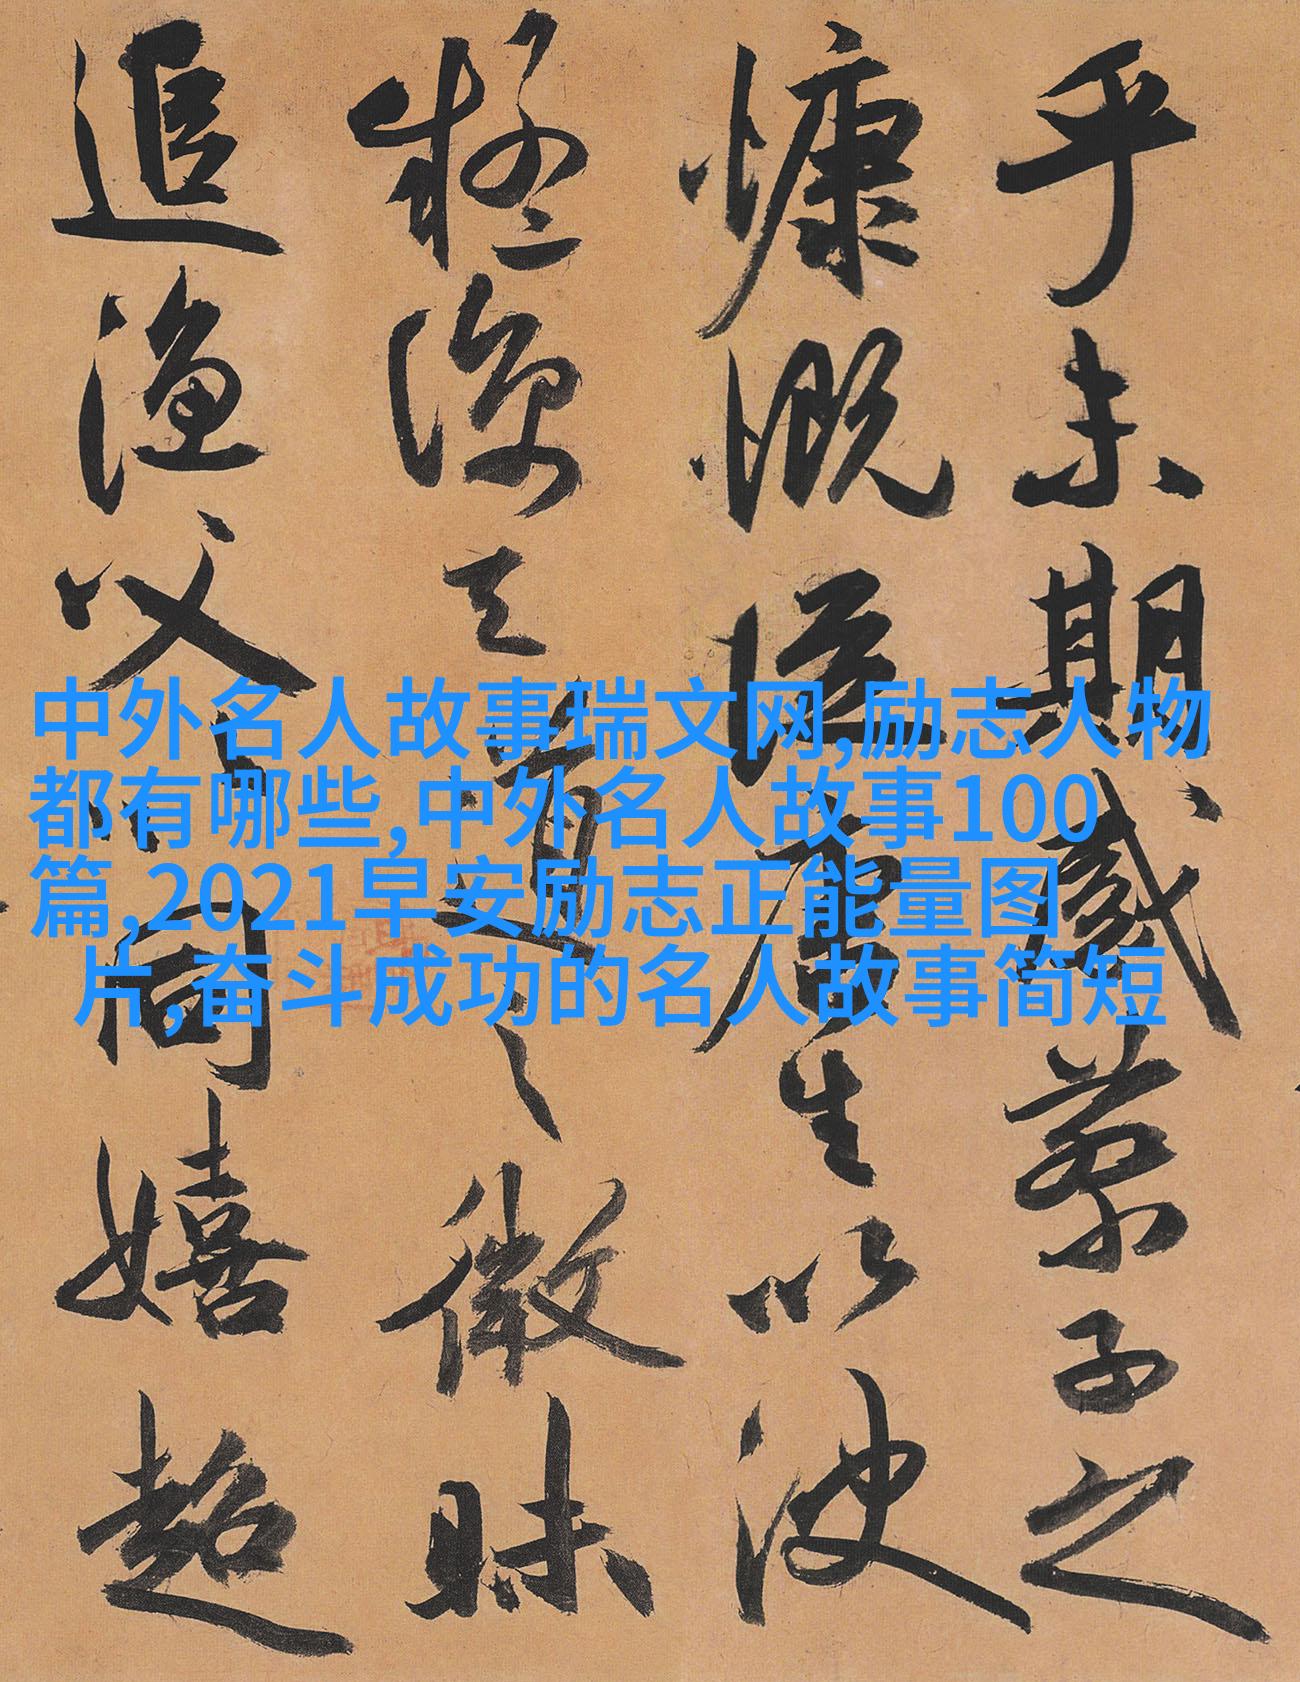 乎未期感蔡子之
慷慨從唐生以決
疑諒天道之微昧
追漁父以同嬉超
中外名人故事瑞文网,励志人物
都有哪些,中外名人故事100
篇,2021早安励志正能量图
片,奋斗成功的名人故事简短